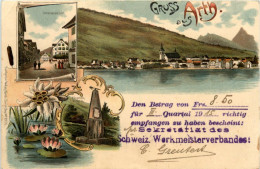 Gruss
aus Arth.
Den Betrag von Frs. 8.50
für II Quartal 19 richtig
empfangen zu haben bescheint:
Sekretariat des
Schweiz. Werkmeisterverbandes: